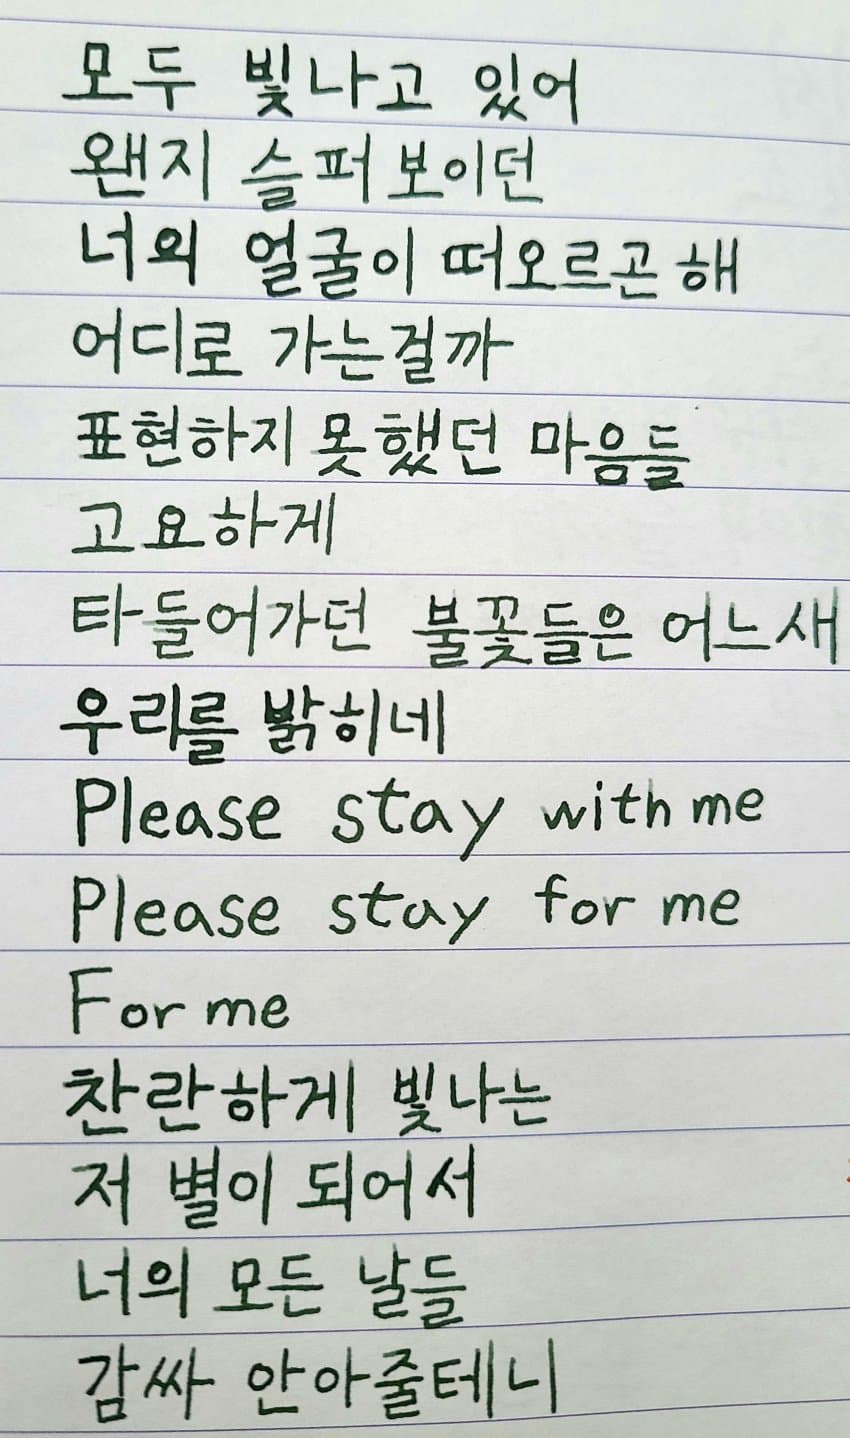 모두 빛나고 있어
왠지 슬퍼보이던
너의 얼굴이 떠오르곤해
어디로 가는걸까
표현하지 못했던 마음들
고요하게
타들어가던 불꽃들은 어느새
우리를 밝히네
Please stay with me
Please stay for me
For me
찬란하게 빛나는
저 별이 되어서
너의 모든 날들
감싸 안아줄테니